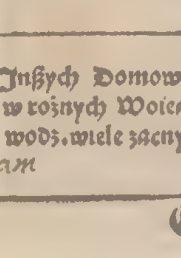 Jnßych Domow
w rożnych Woie
wodz. wiele zacny
am